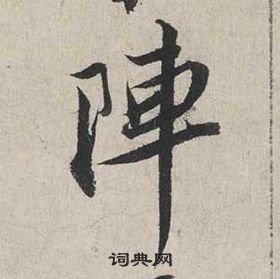 陣
词典网